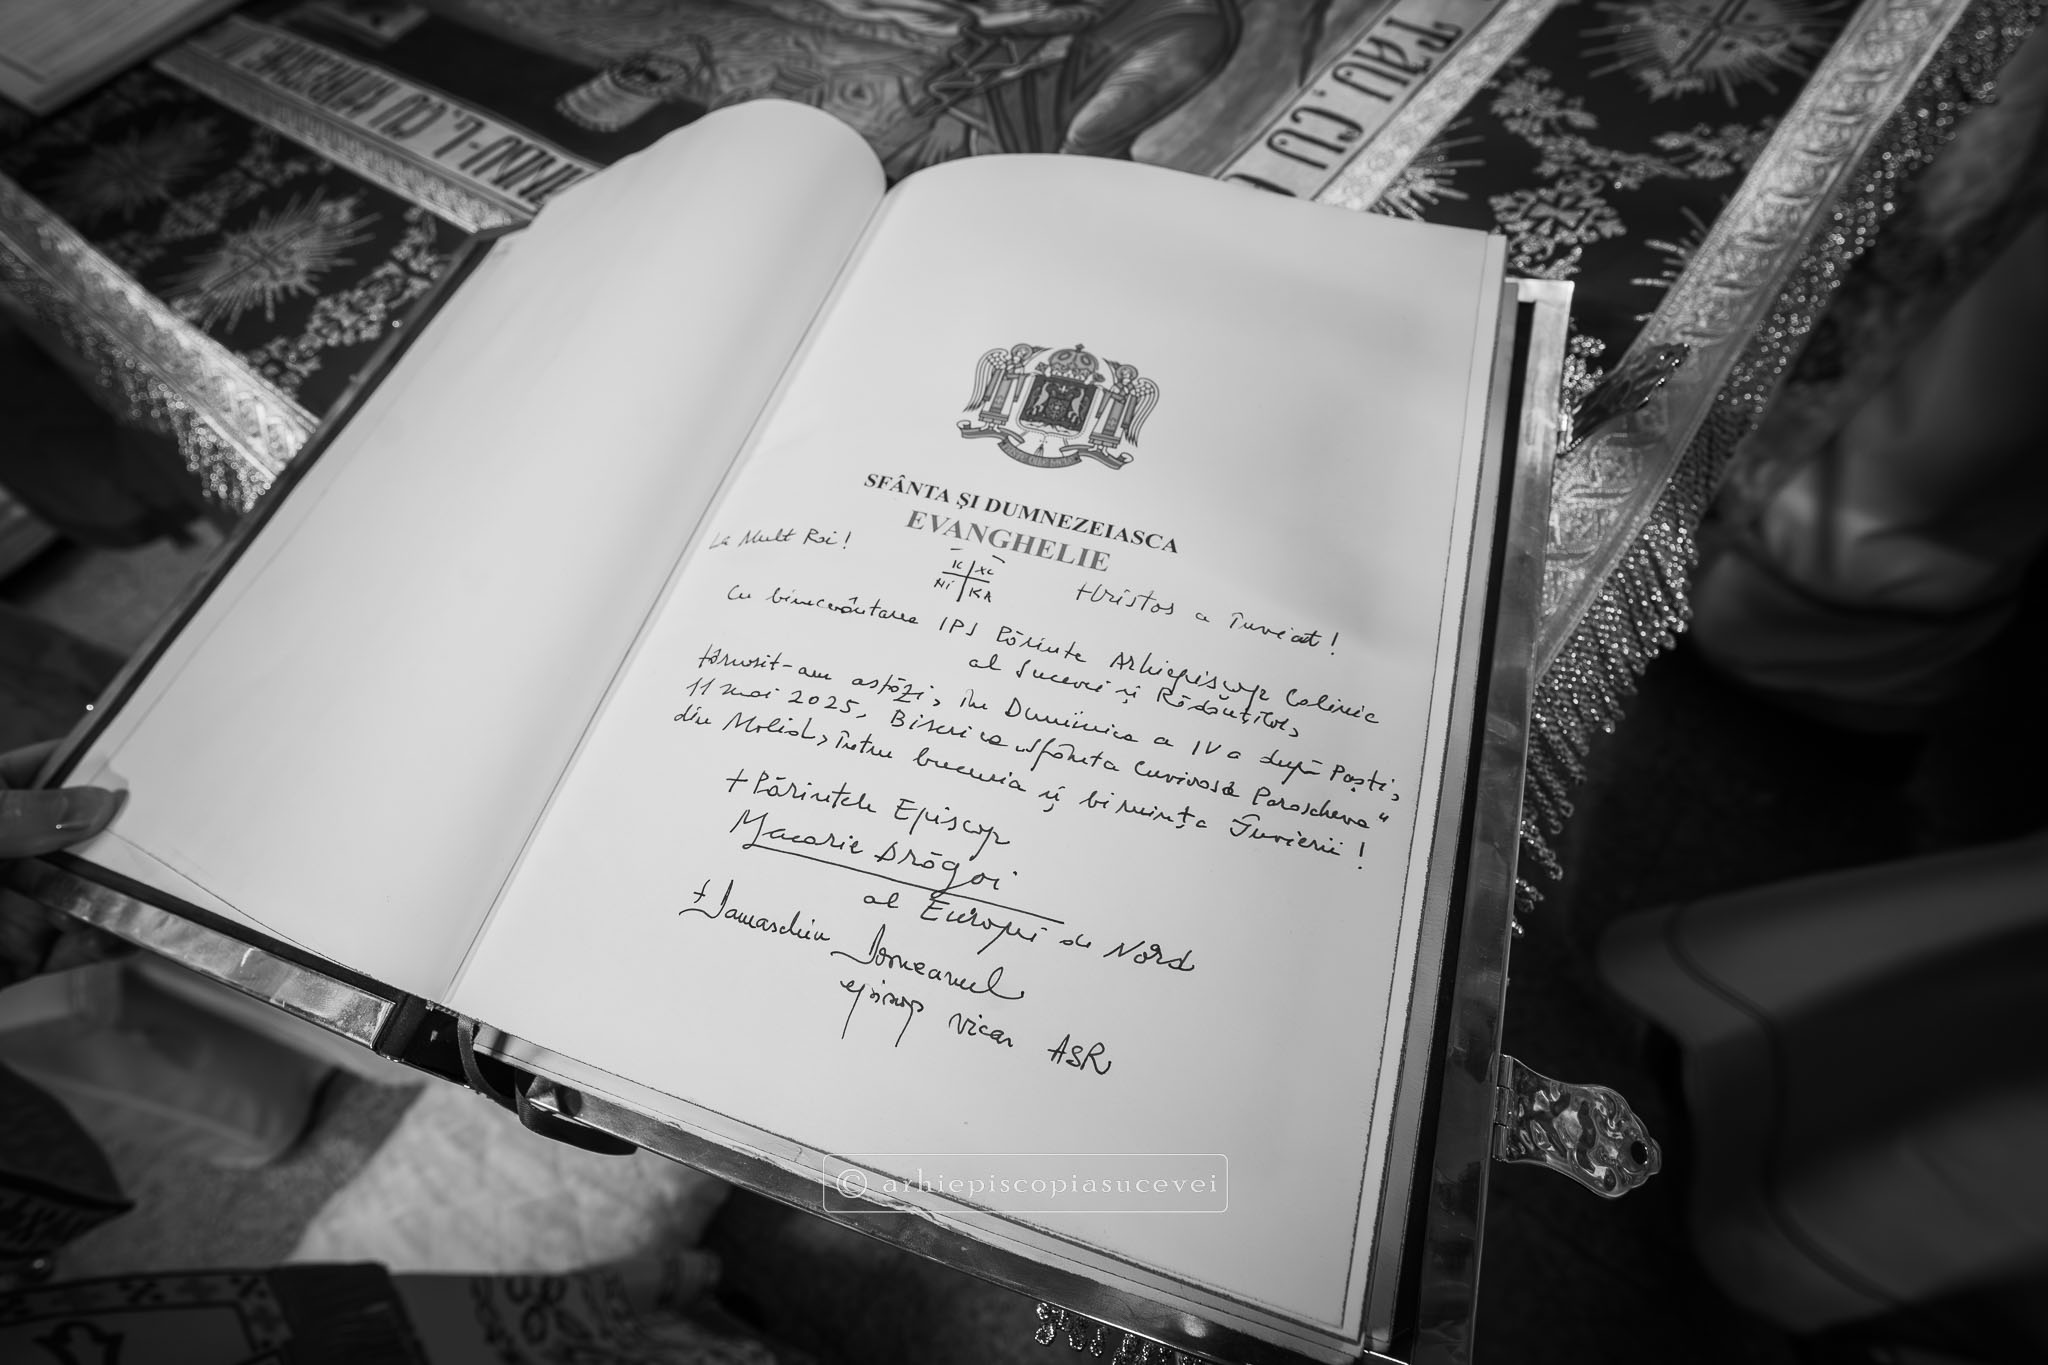 TĂU, CU
SFÂNTA ŞI DUMNEZEIASCA
EVANGHELIE
La Mulți Ani!
IC XC
NI KA
Hristos a Înviat!
Cu binecuvântarea IPS Părinte Arhiepiscop Calinic
al Sucevei și Rădăuților,
târnosit-am astăzi, în Duminica a IV a după Paști,
11 mai 2025, Biserica „Sfânta Cuvioasă Parascheva"
din Molid, întru bucuria și biruința Învierii!
+ Părintele Episcop
Macarie Drăgoi
al Europei de Nord
+ Damaschin Dorneanul
episcop vicar ASR
© arhiepiscopiasucevei